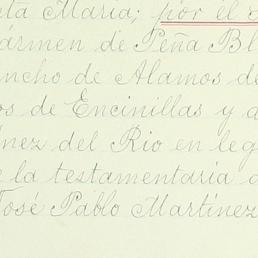 ta Maria; por el
ármen de Peña Bl
ncho de Alamos de
os de Encinillas y a
ínez del Rio en leg
e la testamentaria d
José Pablo Martínez